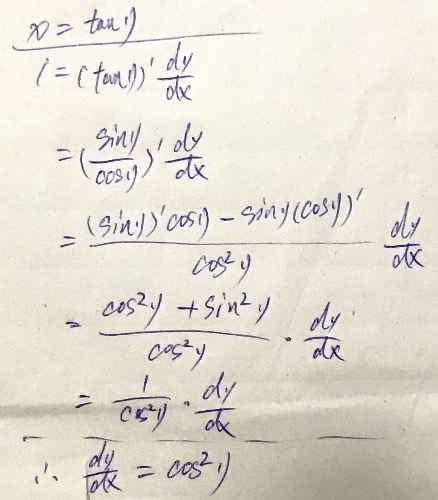 x = tan y
1 = (tan y)' dy/dx
= (sin y / cos y)' dy/dx
= ((sin y)' cos y − sin y (cos y)') / cos²y dy/dx
= (cos²y + sin²y) / cos²y · dy/dx
= 1 / cos²y · dy/dx
∴ dy/dx = cos²y